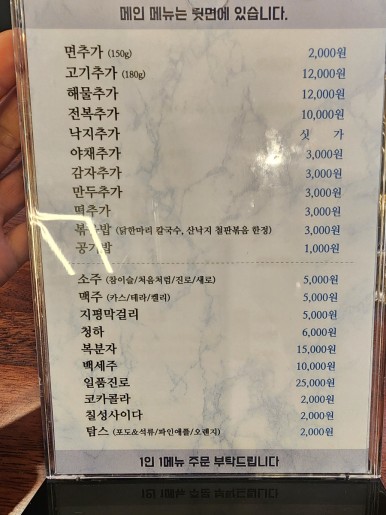 메인 메뉴는 뒷면에 있습니다.
면추가 (150g) 2,000원
고기추가 (180g) 12,000원
해물추가 12,000원
전복추가 10,000원
낙지추가 싯 가
야채추가 3,000원
감자추가 3,000원
만두추가 3,000원
떡추가 3,000원
볶음밥 (닭한마리 칼국수, 산낙지 철판볶음 한정) 3,000원
공기밥 1,000원
소주 (참이슬/처음처럼/진로/새로) 5,000원
맥주 (카스/테라/켈리) 5,000원
지평막걸리 5,000원
청하 6,000원
복분자 15,000원
백세주 10,000원
일품진로 25,000원
코카콜라 2,000원
칠성사이다 2,000원
탐스 (포도&석류/파인애플/오렌지) 2,000원
1인 1메뉴 주문 부탁드립니다